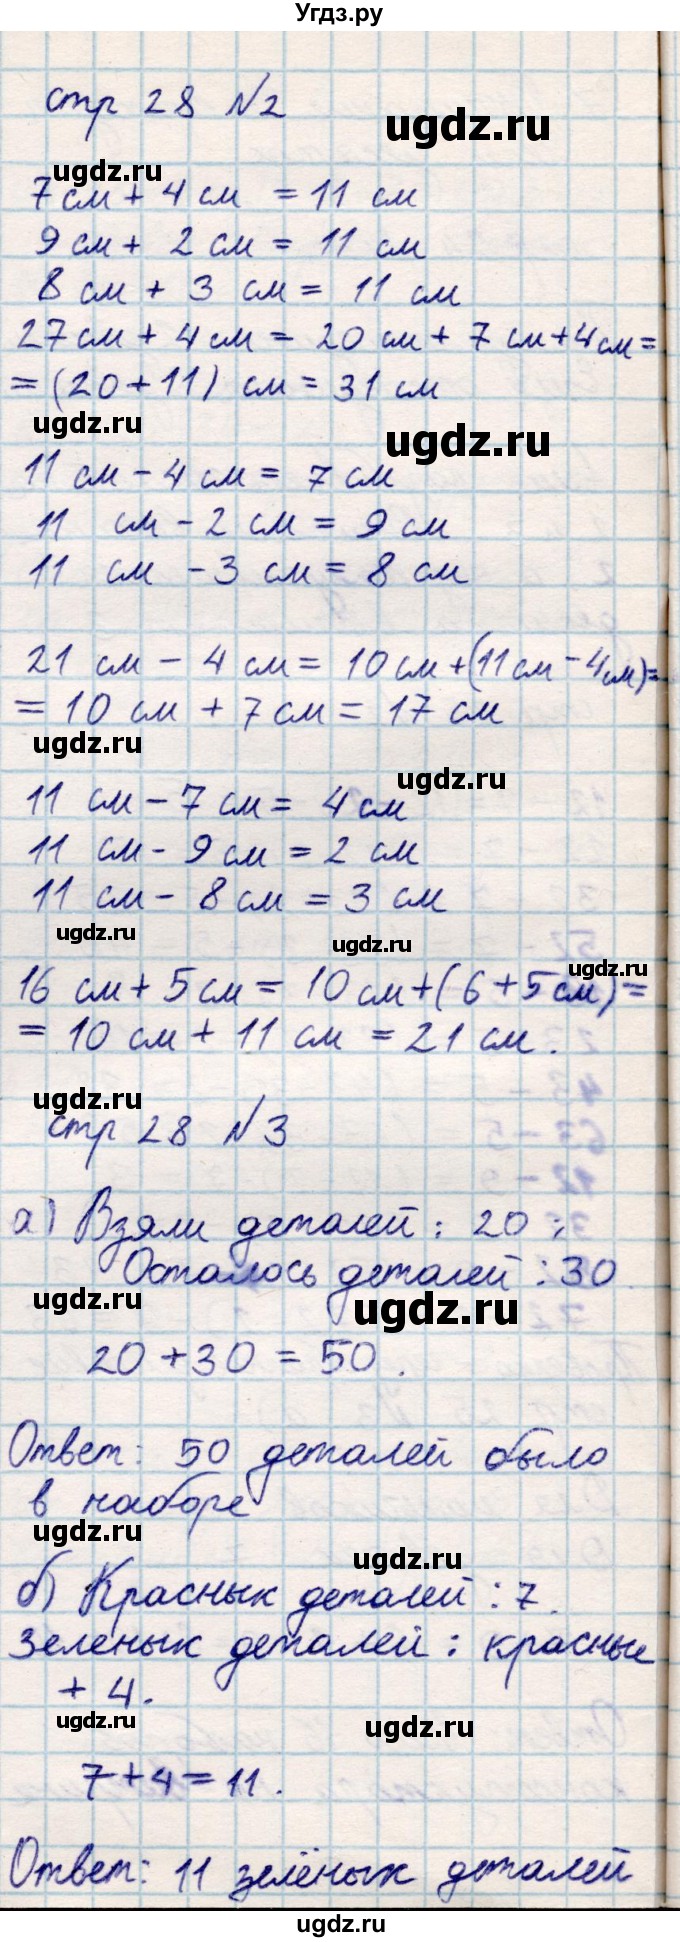 Угдз.ру
стр 28 №2
ugdz.ru
ugdz.ru
7 см + 4 см = 11 см
9 см + 2 см = 11 см
8 см + 3 см = 11 см
27 см + 4 см = 20 см + 7 см + 4 см =
= (20 + 11) см = 31 см
ugdz.ru
ugdz.ru
11 см - 4 см = 7 см
11 см - 2 см = 9 см
11 см - 3 см = 8 см
21 см - 4 см = 10 см + (11 см - 4 см) =
= 10 см + 7 см = 17 см
ugdz.ru
ugdz.ru
11 см - 7 см = 4 см
11 см - 9 см = 2 см
11 см - 8 см = 3 см
ugdz.ru
ugdz.ru
ugdz.ru
16 см + 5 см = 10 см + (6 + 5 см) =
= 10 см + 11 см = 21 см.
ugdz.ru
стр 28 №3
а) Взяли деталей : 20 ;
Осталось деталей : 30.
ugdz.ru
ugdz.ru
20 + 30 = 50.
Ответ: 50 деталей было
в наборе
ugdz.ru
ugdz.ru
б) Красных деталей : 7.
зеленых деталей : красные
+ 4.
ugdz.ru
ugdz.ru
7 + 4 = 11.
Ответ: 11 зелёных деталей
ugdz.ru